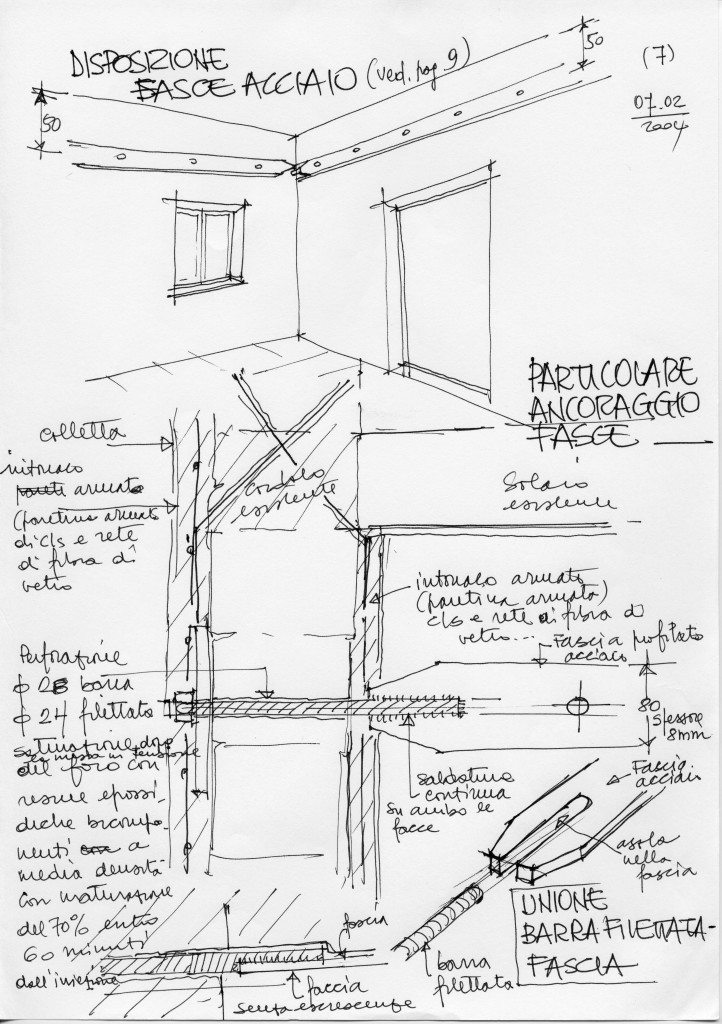 DISPOSIZIONE
FASCE ACCIAIO (Ved. pag. 9)
50
50
(7)
07.02
2004
PARTICOLARE
ANCORAGGIO
FASCE
colletta
intonaco
armato
(paretina armata
di cls e rete
di fibra di
vetro
cordolo
esistente
Solaio
esistente
intonaco armato
(paretina armata)
cls e rete di fibra di
vetro...
Fascia profilato
acciaio
Perforazione
φ 28 barra
φ 24 filettata
Saturazione dopo
la messa in tensione
del foro con
resine epossi-
diche bicompo-
nenti a
media densità
con maturazione
del 70% entro
60 minuti
dall'iniezione
80
spessore
8mm
saldatura
continua
su ambo le
facce
Fascia
acciaio
asola
nella
fascia
UNIONE
BARRA FILETTATA-
FASCIA
barra
filettata
fascia
faccia
senza escrescenze